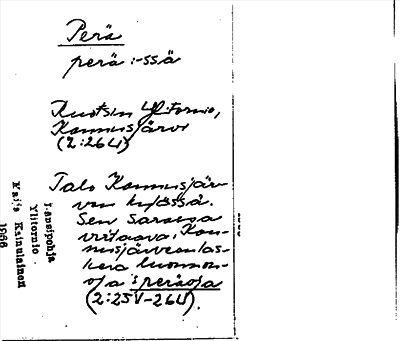 Perä
perä :-ssä
Ruotsin Ylitornio,
Kannusjärvi
(2:26U)
Talo Kannusjär-
ven kylässä.
Sen sarassa
virtaava, Kan-
nusjärveen las-
keva luonnon-
oja: peräoja
(2:25V-26U).
Länsipohja
Ylitornio
Maija Kainulainen
1966